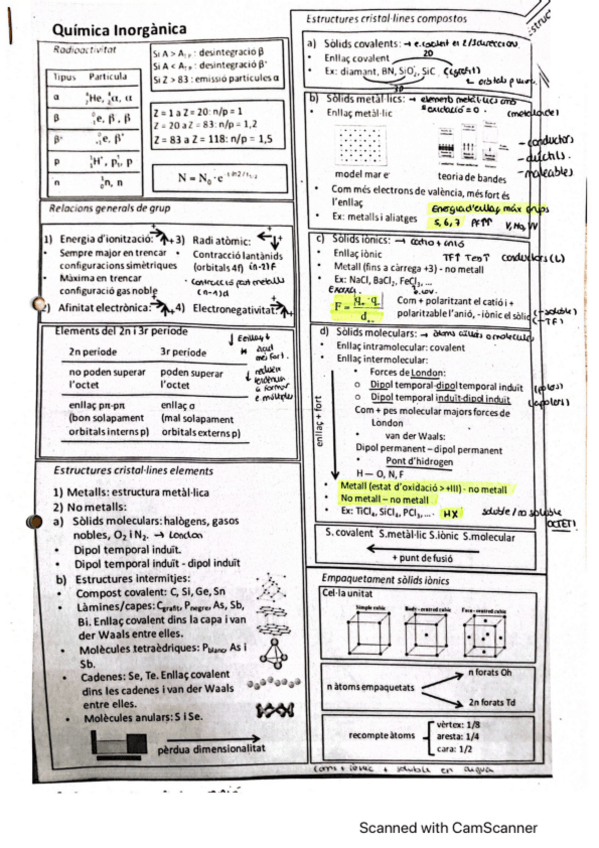 Química Inorgànica
Radioactivitat
Tipus Partícula
α ⁴₂He, ⁴₂α, α
β ⁰₋₁e, β⁻, β
β⁺
p ¹₁H⁺, p
n ¹₀n, n
Si A > Aᵣ,ₚ : desintegració β
Si A < Aᵣ,ₚ : desintegració β⁺
Si Z > 83 : emissió partícules α
Z = 1 a Z = 20: n/p = 1
Z = 20 a Z = 83: n/p = 1,2
Z = 83 a Z = 118: n/p = 1,5
N = N₀·e
Relacions generals de grup
1) Energia d'ionització:
Sempre major en trencar
configuracions simètriques
Màxima en trencar
configuració gas noble
2) Afinitat electrònica:
3) Radi atòmic:
Contracció lantànids
(orbitals 4f) (n-2)f
contracció post metalls
(n-1)d
4) Electronegativitat:
Elements del 2n i 3r període
2n període 3r període
no poden superar
l'octet
poden superar
l'octet
enllaç pπ-pπ
(bon solapament
orbitals interns p)
enllaç σ
(mal solapament
orbitals externs p)
Estructures cristal·lines elements
1) Metalls: estructura metàl·lica
2) No metalls:
a) Sòlids moleculars: halògens, gasos
nobles, O₂ i N₂. → London
Dipol temporal induït.
Dipol temporal induït - dipol induït
b) Estructures intermitjes:
Compost covalent: C, Si, Ge, Sn
Làmines/capes: C grafit, P negre, As, Sb,
Bi. Enllaç covalent dins la capa i van
der Waals entre elles.
Molècules tetraèdriques: P blanc, As i
Sb.
Cadenes: Se, Te. Enllaç covalent
dins les cadenes i van der Waals
entre elles.
Molècules anulars: S i Se.
pèrdua dimensionalitat
Estructures cristal·lines compostos
a) Sòlids covalents:
Enllaç covalent
Ex: diamant, BN, SiO₂, SiC
b) Sòlids metàl·lics:
Enllaç metàl·lic
- conductors
- dúctils.
- maleables
model mar e⁻ teoria de bandes
Com més electrons de valència, més fort és
l'enllaç
Energia d'enllaç màx grups
5, 6, 7
Ex: metalls i aliatges
c) Sòlids iònics: → catió + anió
Enllaç iònic
conductors (L)
Metall (fins a càrrega +3) - no metall
Ex: NaCl, BaCl₂, FeCl₃, ...
Com + polaritzant el catió i +
polaritzable l'anió, - iònic el sòlid
d) Sòlids moleculars:
Enllaç intramolecular: covalent
Enllaç intermolecular:
Forces de London:
Dipol temporal-dipol temporal induït
Dipol temporal induït-dipol induït
Com + pes molecular majors forces de
London
van der Waals:
Dipol permanent – dipol permanent
Pont d'hidrogen
H — O, N, F
enllaç + fort
Metall (estat d'oxidació > +III) - no metall
No metall – no metall
Ex: TiCl₄, SiCl₄, PCl₃, ... HX
soluble / no soluble
OCTET!
S. covalent S. metàl·lic S. iònic S. molecular
+ punt de fusió
Empaquetament sòlids iònics
Cel·la unitat
Simple cubic Body - centred cubic Face - centred cubic
n àtoms empaquetats
n forats Oh
2n forats Td
recompte àtoms
vèrtex: 1/8
aresta: 1/4
cara: 1/2
Scanned with CamScanner